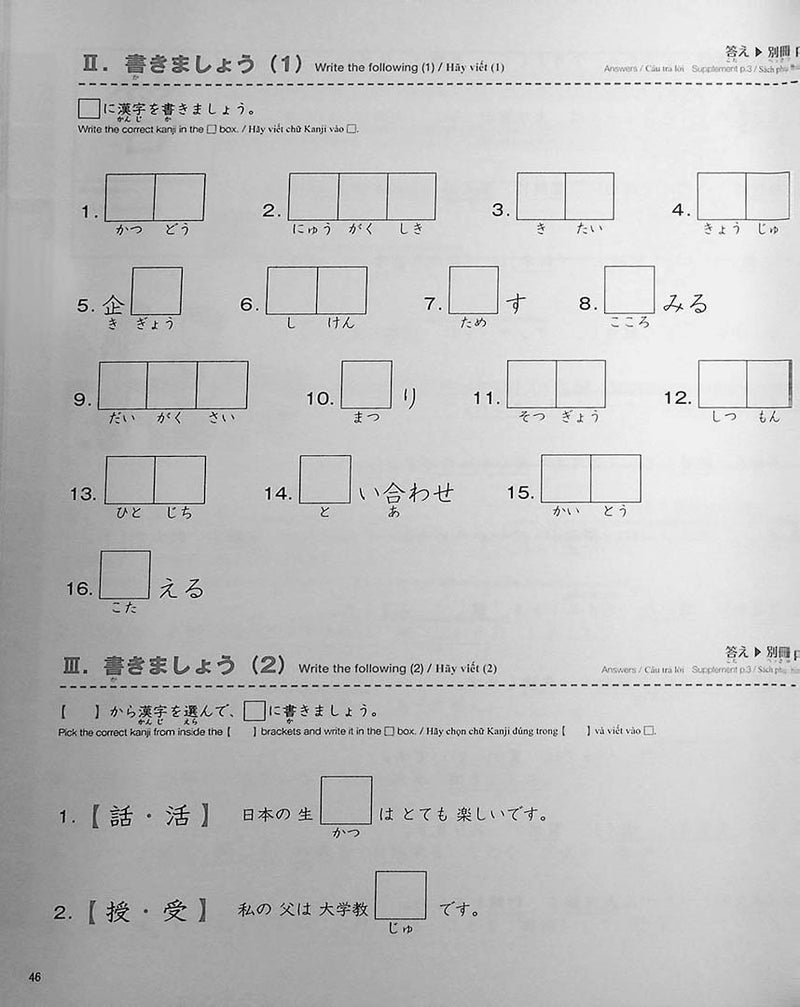 答え ▶ 別冊
こた べっさつ
II. 書きましょう (1) Write the following (1) / Hãy viết (1)
か
Answers / Câu trả lời Supplement p.3 / Sách phụ
□に漢字を書きましょう。
かんじ か
Write the correct kanji in the □ box. / Hãy viết chữ Kanji vào □.
1. 2. 3. 4.
かつ どう にゅう がく しき き たい きょう じゅ
5. 企 6. 7. す 8. みる
き ぎょう し けん ため こころ
9. 10. り 11. 12.
だい がく さい まつ そつ ぎょう しつ もん
13. 14. い合わせ 15.
ひと じち と あ かい とう
16. える
こた
答え ▶ 別冊
こた べっさつ
III. 書きましょう (2) Write the following (2) / Hãy viết (2)
か
Answers / Câu trả lời Supplement p.3 / Sách phụ
【 】から漢字を選んで、□に書きましょう。
かんじ えら か
Pick the correct kanji from inside the【 】brackets and write it in the □ box. / Hãy chọn chữ Kanji đúng trong【 】và viết vào □.
1.【 話・活 】 日本の 生□は とても 楽しいです。
かつ
2.【 授・受 】 私の 父は 大学教□です。
じゅ
46